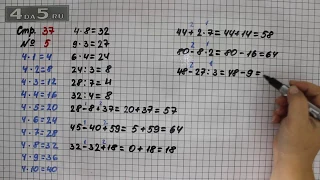 4DA5.RU
Стр. 37
№ 5
4·1 = 4
4·2 = 8
4·3 = 12
4·4 = 16
4·5 = 20
4·6 = 24
4·7 = 28
4·8 = 32
4·9 = 36
4·10 = 40
4·8 = 32
9·3 = 27
6·4 = 24
24:3 = 8
28:7 = 4
32:4 = 8
28-8+37 = 20+37 = 57
45-40+59 = 5+59 = 64
32-32+18 = 0+18 = 18
2 1
44+2·7 = 44+14 = 58
2 1
80-8·2 = 80-16 = 64
2 1
48-27:3 = 48-9 =